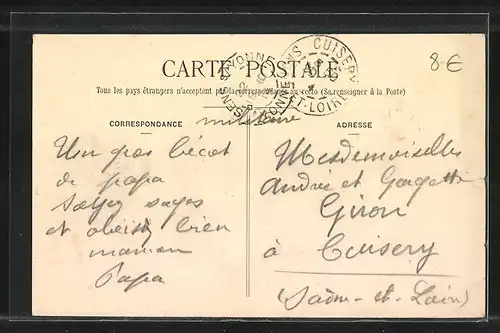 8€
CARTE POSTALE
Tous les pays étrangers n'acceptent pas la correspondance au recto (Se renseigner à la Poste)
CUISERY
ET-LOIRE
militaire
CORRESPONDANCE
ADRESSE
Un gros bécot
de papa
Soyez sages
et obeissez bien
maman
Papa
Mesdemoiselles
Andrée et Georgette
Giron
à Cuisery
(Saône-et-Loire)